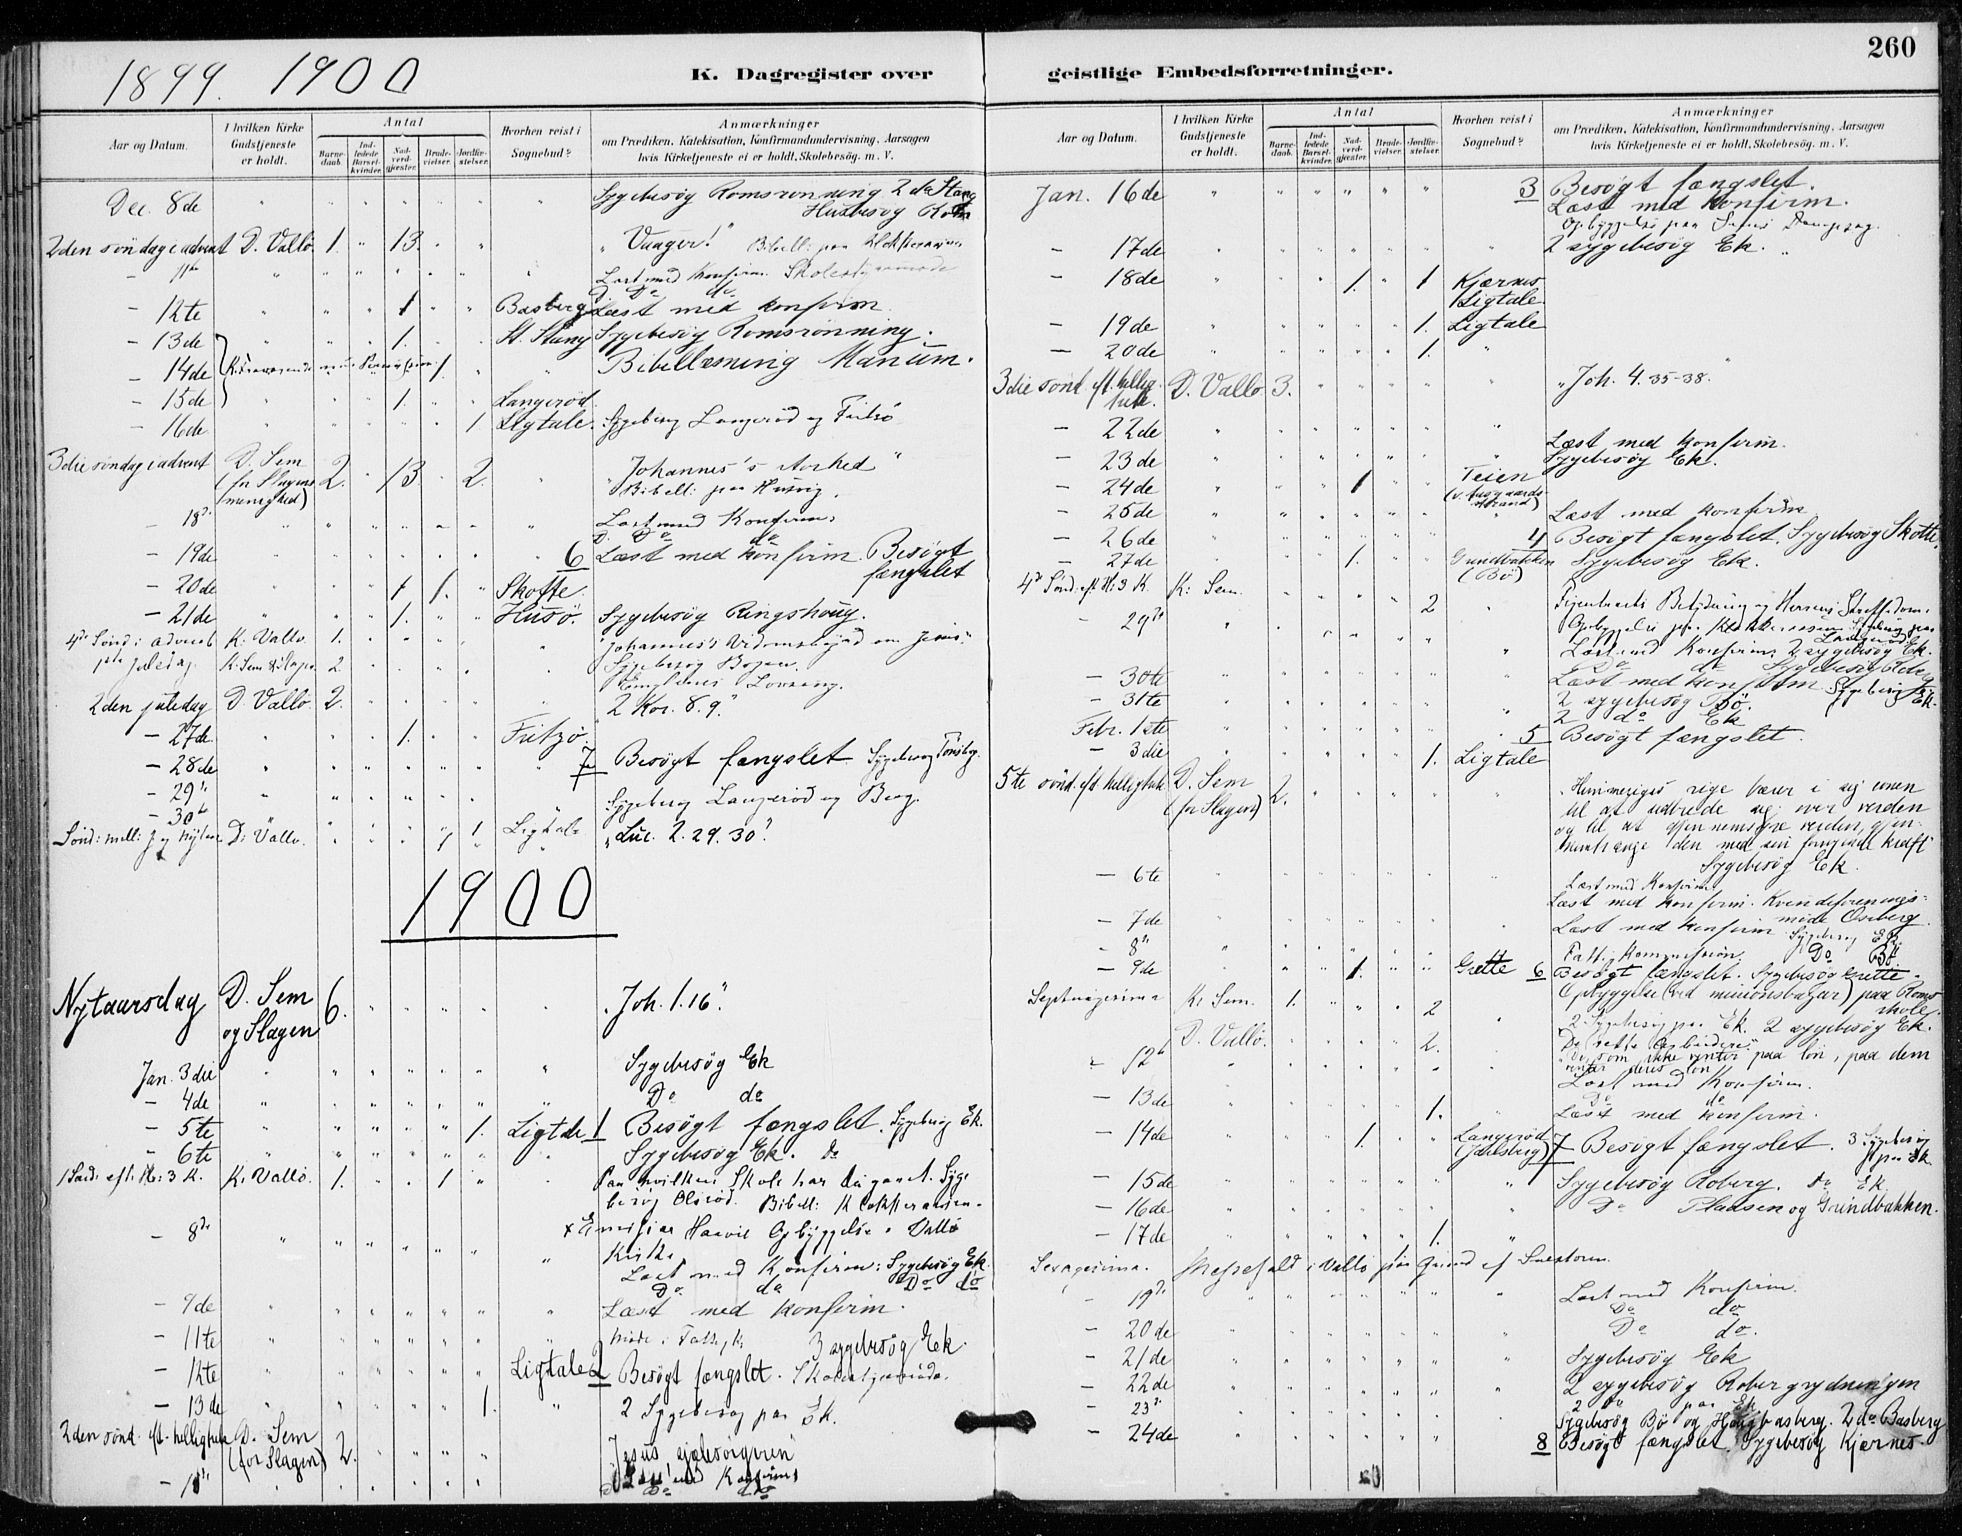 260
1899. 1900
K. Dagregister over geistlige Embedsforretninger.
Aar og Datum.
I hvilken Kirke Gudstjeneste er holdt.
Antal
Barnedaab.
Indledede Barselkvinder.
Nadverdgjester.
Brudevielser.
Jordfæstelser.
Hvorhen reist i Sognebud?
Anmærkninger
om Prædiken, Katekisation, Konfirmandundervisning, Aarsagen
hvis Kirketjeneste ei er holdt, Skolebesøg. m. V.
Dec. 8de " " " " " " Sygebesøg Romsrønning 2 do Stang
Husbesøg
2den søndag i advent D. Vallø 1. " 13. " " „Vaager!"
11te Læst med Konfirm. Skolestyremøde
Do do
- 12te " " " 1 " " Basberg Læst med konfirm.
- 13de 1. St. Stang Sygebesøg Romsrønning.
- 14de 1. Bibellæsning Manum.
- 15de 1. Langerød
- 16de 1 Ligtale. Sygebesøg Langerød og Fritsø
3die søndag i advent D. Sem (for Slagens menighed) 2. " 13. " 2. „Johannes's storhed"
Bibell: paa Husvig.
- 18de Læst med Konfirm:
Do do
- 19de 6 Læst med konfirm. Besøgt fængslet
- 20de 1 1. Skotte.
- 21de 1. Husø. Sygebesøg Ringshoug.
4de Sønd: i advent K: Vallø. 1. "Johannes's Vidnesbyrd om Jesus"
1ste juledag K: Sem & Slagen 2 Sygebesøg Bogen.
Englenes Lovsang.
2den juledag D. Vallø. 2. „2 Kor. 8. 9."
- 27de 1. Fritzø.
- 28de 7 Besøgt fængslet. Sygebesøg Tønsbg.
- 29de
- 30te Sygebesøg Langerød og Berg.
Sønd: mell: J. og Nytaar D: Vallø. 1 1 Ligtale „Luc. 2. 29. 30."
1900
Nytaarsdag D. Sem og Slagen 6. „Joh. 1. 16".
Jan. 3die Sygebesøg Ek
- 4de Do do
- 5te 1. Ligtale 1 Besøgt fængslet. Sygebesøg Ek.
- 6te Sygebesøg Ek. do
1 Sønd: eft: H: 3 K. K: Vallø. 1. 1 Paa hvilken Skole har du gaaet. Sygebesøg Olsrød. Bibell:
- 8de Opbyggelse i Vallø Kirke
Læst med Konfirm: Sygebesøg Ek.
Do do Do do
- 9de Læst med konfirm.
- 11te Møde i Fattigk. 3 sygebesøg Ek.
- 12te Ligtale 2 Besøgt fængslet. Skolestyremøde.
- 13de 1. 2 Sygebesøg paa Ek.
2den sønd. eft. hellig D. Sem (for Slagen) 2. „Jesus, sjælesørgeren"
- 15de Læst med Konfirm:
Do do
Aar og Datum.
I hvilken Kirke Gudstjeneste er holdt.
Antal
Barnedaab.
Indledede Barselkvinder.
Nadverdgjester.
Brudevielser.
Jordfæstelser.
Hvorhen reist i Sognebud?
Anmærkninger
om Prædiken, Katekisation, Konfirmandundervisning, Aarsagen
hvis Kirketjeneste ei er holdt, Skolebesøg. m. V.
Jan. 16de 3 Besøgt fængslet.
Læst med Konfirm.
Opbyggelse paa
- 17de 2 sygebesøg Ek.
- 18de 1. 1 Kjærnes Ligtale
- 19de 1. Ligtale
- 20de 1. "
3die sønd. eft. hellig D. Vallø 3. „Joh. 4. 35-38."
- 22de Læst med konfirm.
- 23de Sygebesøg Ek.
- 24de 1 Teien (v. Aasgaardsstrand)
- 25de Læst med konfirm.
- 26de 4 Besøgt fængslet. Sygebesøg Skotte.
- 27de 1. Grundbakken (Bø) Sygebesøg Ek.
4de Sønd: eft H: 3 K. K: Sem. 2
- 29de Læst med Konfirm: 2 sygebesøg Ek.
Do do
- 30te Læst med konfirm.
- 31te 2 sygebesøg Bø.
Febr. 1ste 2 do Ek
- 3die 5 Besøgt fængslet. 1. Ligtale
5te sønd. eft. D. Sem (for Slagen) 2. „Himmeriges rige bærer i sig evnen
til at udbrede sig over verden
og til at gjennemsyre verden, gjennemtrænge den med sin kraft"
Sygebesøg Ek.
- 6te Læst med Konfirm.
Læst med konfirm. Kvindeforeningsmøde Oseberg
- 7de Læst med konfirm. Sygebesøg Ek.
- 8de Fatt. kommission. Do
- 9de 1. Grette 6 Besøgt fængslet. Sygebesøg Grette.
Septuagesima K: Sem. 1. 2 Opbyggelse (ved missionsbazar) paa Roms skole.
2 Sygebesøg paa Ek. 2 sygebesøg Ek.
D. Vallø. 2. „De rette Arbeidere."
- 12te som ikke venter paa løn, paa dem venter deres løn
Læst med Konfirm.
Do do
- 13de 1. Læst med konfirm.
- 14de 1. Langerød (Jarlsberg) 7 Besøgt fængslet. 3 Sygebesøg paa Ek.
- 15de Sygebesøg Roberg. do Ek.
- 16de Do Pladsen og Grindbakken.
- 17de 1.
Sexagesima. Messefald i Vallø paa Grund af Snestorm.
- 19de Læst med Konfirm.
Do do
- 20de Do do.
- 21de Sygebesøg Ek
- 22de 2 sygebesøg
- 23de 2 do paa Ek
- 24de Sygebesøg Bø og Hougbasberg. 2 do Basberg
8 Besøgt fængslet. Sygebesøg Kjærnes